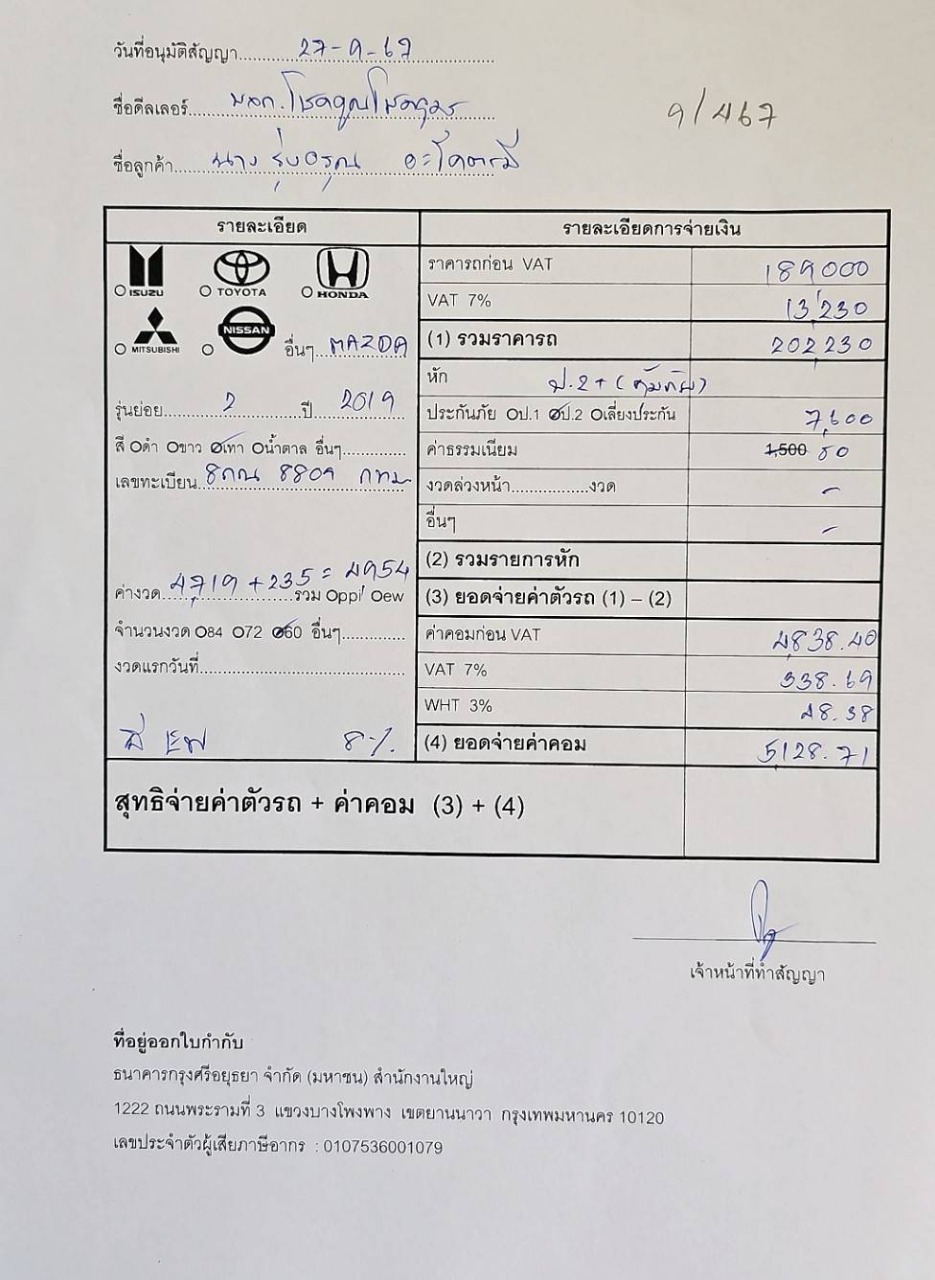 วันที่อนุมัติสัญญา 27-9-67
ชื่อดีลเลอร์ หจก. โชคคูณโชค
9/467
ชื่อลูกค้า นาง รุ่งอรุณ อะโคตรมี
รายละเอียด
ISUZU TOYOTA HONDA
MITSUBISHI NISSAN อื่นๆ MAZDA
รุ่นย่อย 2 ปี 2019
สี ดำ ขาว เทา น้ำตาล อื่นๆ
เลขทะเบียน 8กณ 8809 กทม
ค่างวด 4,719 + 235 = 4954 รวม ppi/ ew
จำนวนงวด 84 72 60 อื่นๆ
งวดแรกวันที่
8%
รายละเอียดการจ่ายเงิน
ราคารถก่อน VAT 189000
VAT 7% 13,230
(1) รวมราคารถ 202,230
หัก ป.2+ (คุ้มภัย)
ประกันภัย ป.1 ป.2 เลี่ยงประกัน 7,600
ค่าธรรมเนียม 1,500 50
งวดล่วงหน้า งวด -
อื่นๆ -
(2) รวมรายการหัก
(3) ยอดจ่ายค่าตัวรถ (1) – (2)
ค่าคอมก่อน VAT 4,838.40
VAT 7% 338.69
WHT 3% 48.38
(4) ยอดจ่ายค่าคอม 5,128.71
สุทธิจ่ายค่าตัวรถ + ค่าคอม (3) + (4)
เจ้าหน้าที่ทำสัญญา
ที่อยู่ออกใบกำกับ
ธนาคารกรุงศรีอยุธยา จำกัด (มหาชน) สำนักงานใหญ่
1222 ถนนพระรามที่ 3 แขวงบางโพงพาง เขตยานนาวา กรุงเทพมหานคร 10120
เลขประจำตัวผู้เสียภาษีอากร : 0107536001079